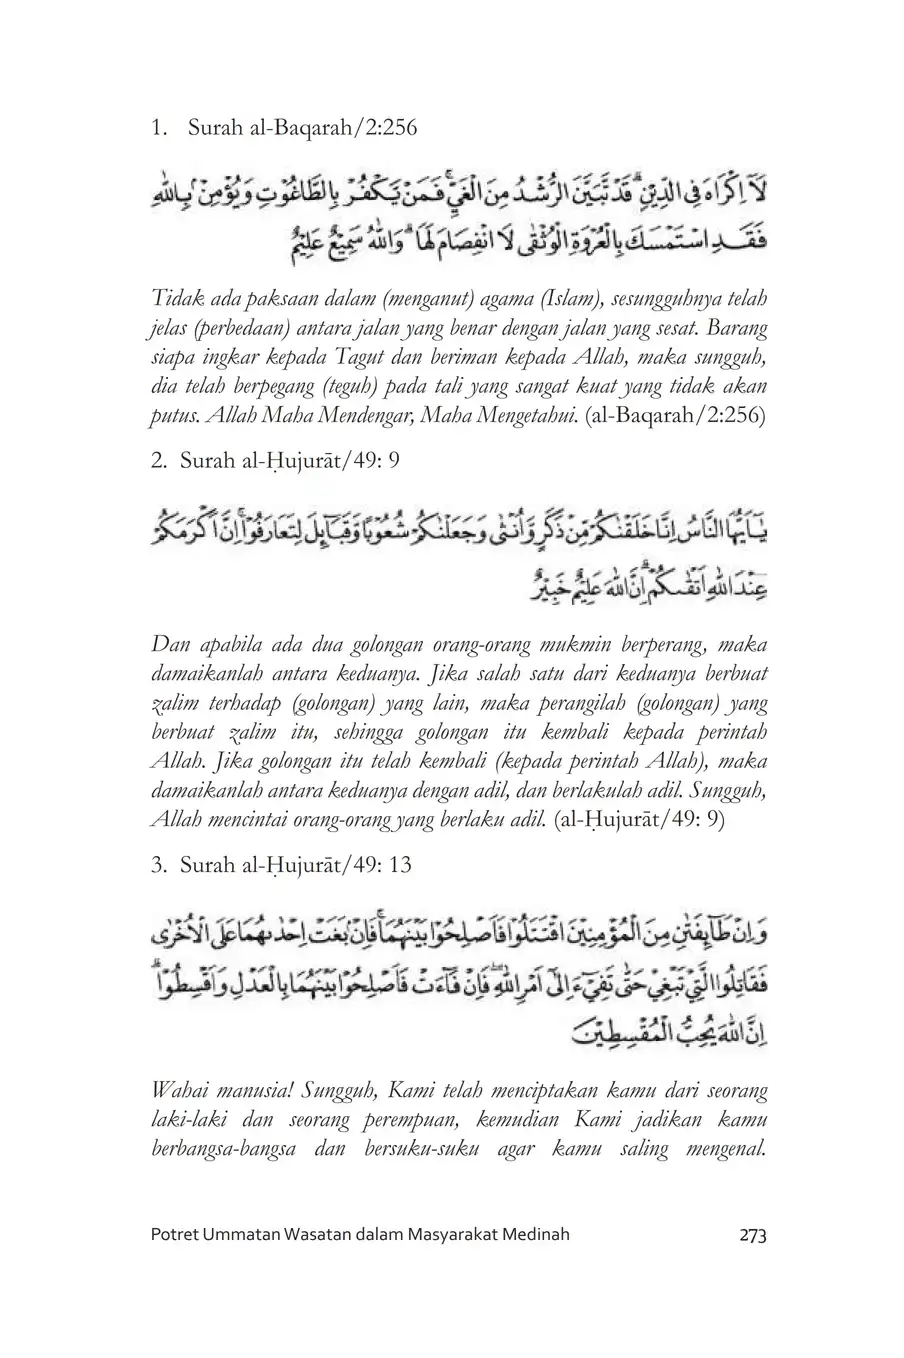 1. Surah al-Baqarah/2:256
لَآ اِكْرَاهَ فِى الدِّيْنِۗ قَدْ تَّبَيَّنَ الرُّشْدُ مِنَ الْغَيِّۚ فَمَنْ يَّكْفُرْ بِالطَّاغُوْتِ وَيُؤْمِنْۢ بِاللّٰهِ
فَقَدِ اسْتَمْسَكَ بِالْعُرْوَةِ الْوُثْقٰى لَا انْفِصَامَ لَهَاۗ وَاللّٰهُ سَمِيْعٌ عَلِيْمٌ
Tidak ada paksaan dalam (menganut) agama (Islam), sesungguhnya telah
jelas (perbedaan) antara jalan yang benar dengan jalan yang sesat. Barang
siapa ingkar kepada Tagut dan beriman kepada Allah, maka sungguh,
dia telah berpegang (teguh) pada tali yang sangat kuat yang tidak akan
putus. Allah Maha Mendengar, Maha Mengetahui. (al-Baqarah/2:256)
2. Surah al-Ḥujurāt/49: 9
يٰٓاَيُّهَا النَّاسُ اِنَّا خَلَقْنٰكُمْ مِّنْ ذَكَرٍ وَّاُنْثٰى وَجَعَلْنٰكُمْ شُعُوْبًا وَّقَبَاۤىِٕلَ لِتَعَارَفُوْاۚ اِنَّ اَكْرَمَكُمْ
عِنْدَ اللّٰهِ اَتْقٰىكُمْۗ اِنَّ اللّٰهَ عَلِيْمٌ خَبِيْرٌ
Dan apabila ada dua golongan orang-orang mukmin berperang, maka
damaikanlah antara keduanya. Jika salah satu dari keduanya berbuat
zalim terhadap (golongan) yang lain, maka perangilah (golongan) yang
berbuat zalim itu, sehingga golongan itu kembali kepada perintah
Allah. Jika golongan itu telah kembali (kepada perintah Allah), maka
damaikanlah antara keduanya dengan adil, dan berlakulah adil. Sungguh,
Allah mencintai orang-orang yang berlaku adil. (al-Ḥujurāt/49: 9)
3. Surah al-Ḥujurāt/49: 13
وَاِنْ طَاۤىِٕفَتٰنِ مِنَ الْمُؤْمِنِيْنَ اقْتَتَلُوْا فَاَصْلِحُوْا بَيْنَهُمَاۚ فَاِنْۢ بَغَتْ اِحْدٰىهُمَا عَلَى الْاُخْرٰى
فَقَاتِلُوا الَّتِيْ تَبْغِيْ حَتّٰى تَفِيْۤءَ اِلٰٓى اَمْرِ اللّٰهِۖ فَاِنْ فَاۤءَتْ فَاَصْلِحُوْا بَيْنَهُمَا بِالْعَدْلِ وَاَقْسِطُوْاۗ
اِنَّ اللّٰهَ يُحِبُّ الْمُقْسِطِيْنَ
Wahai manusia! Sungguh, Kami telah menciptakan kamu dari seorang
laki-laki dan seorang perempuan, kemudian Kami jadikan kamu
berbangsa-bangsa dan bersuku-suku agar kamu saling mengenal.
Potret Ummatan Wasatan dalam Masyarakat Medinah 273